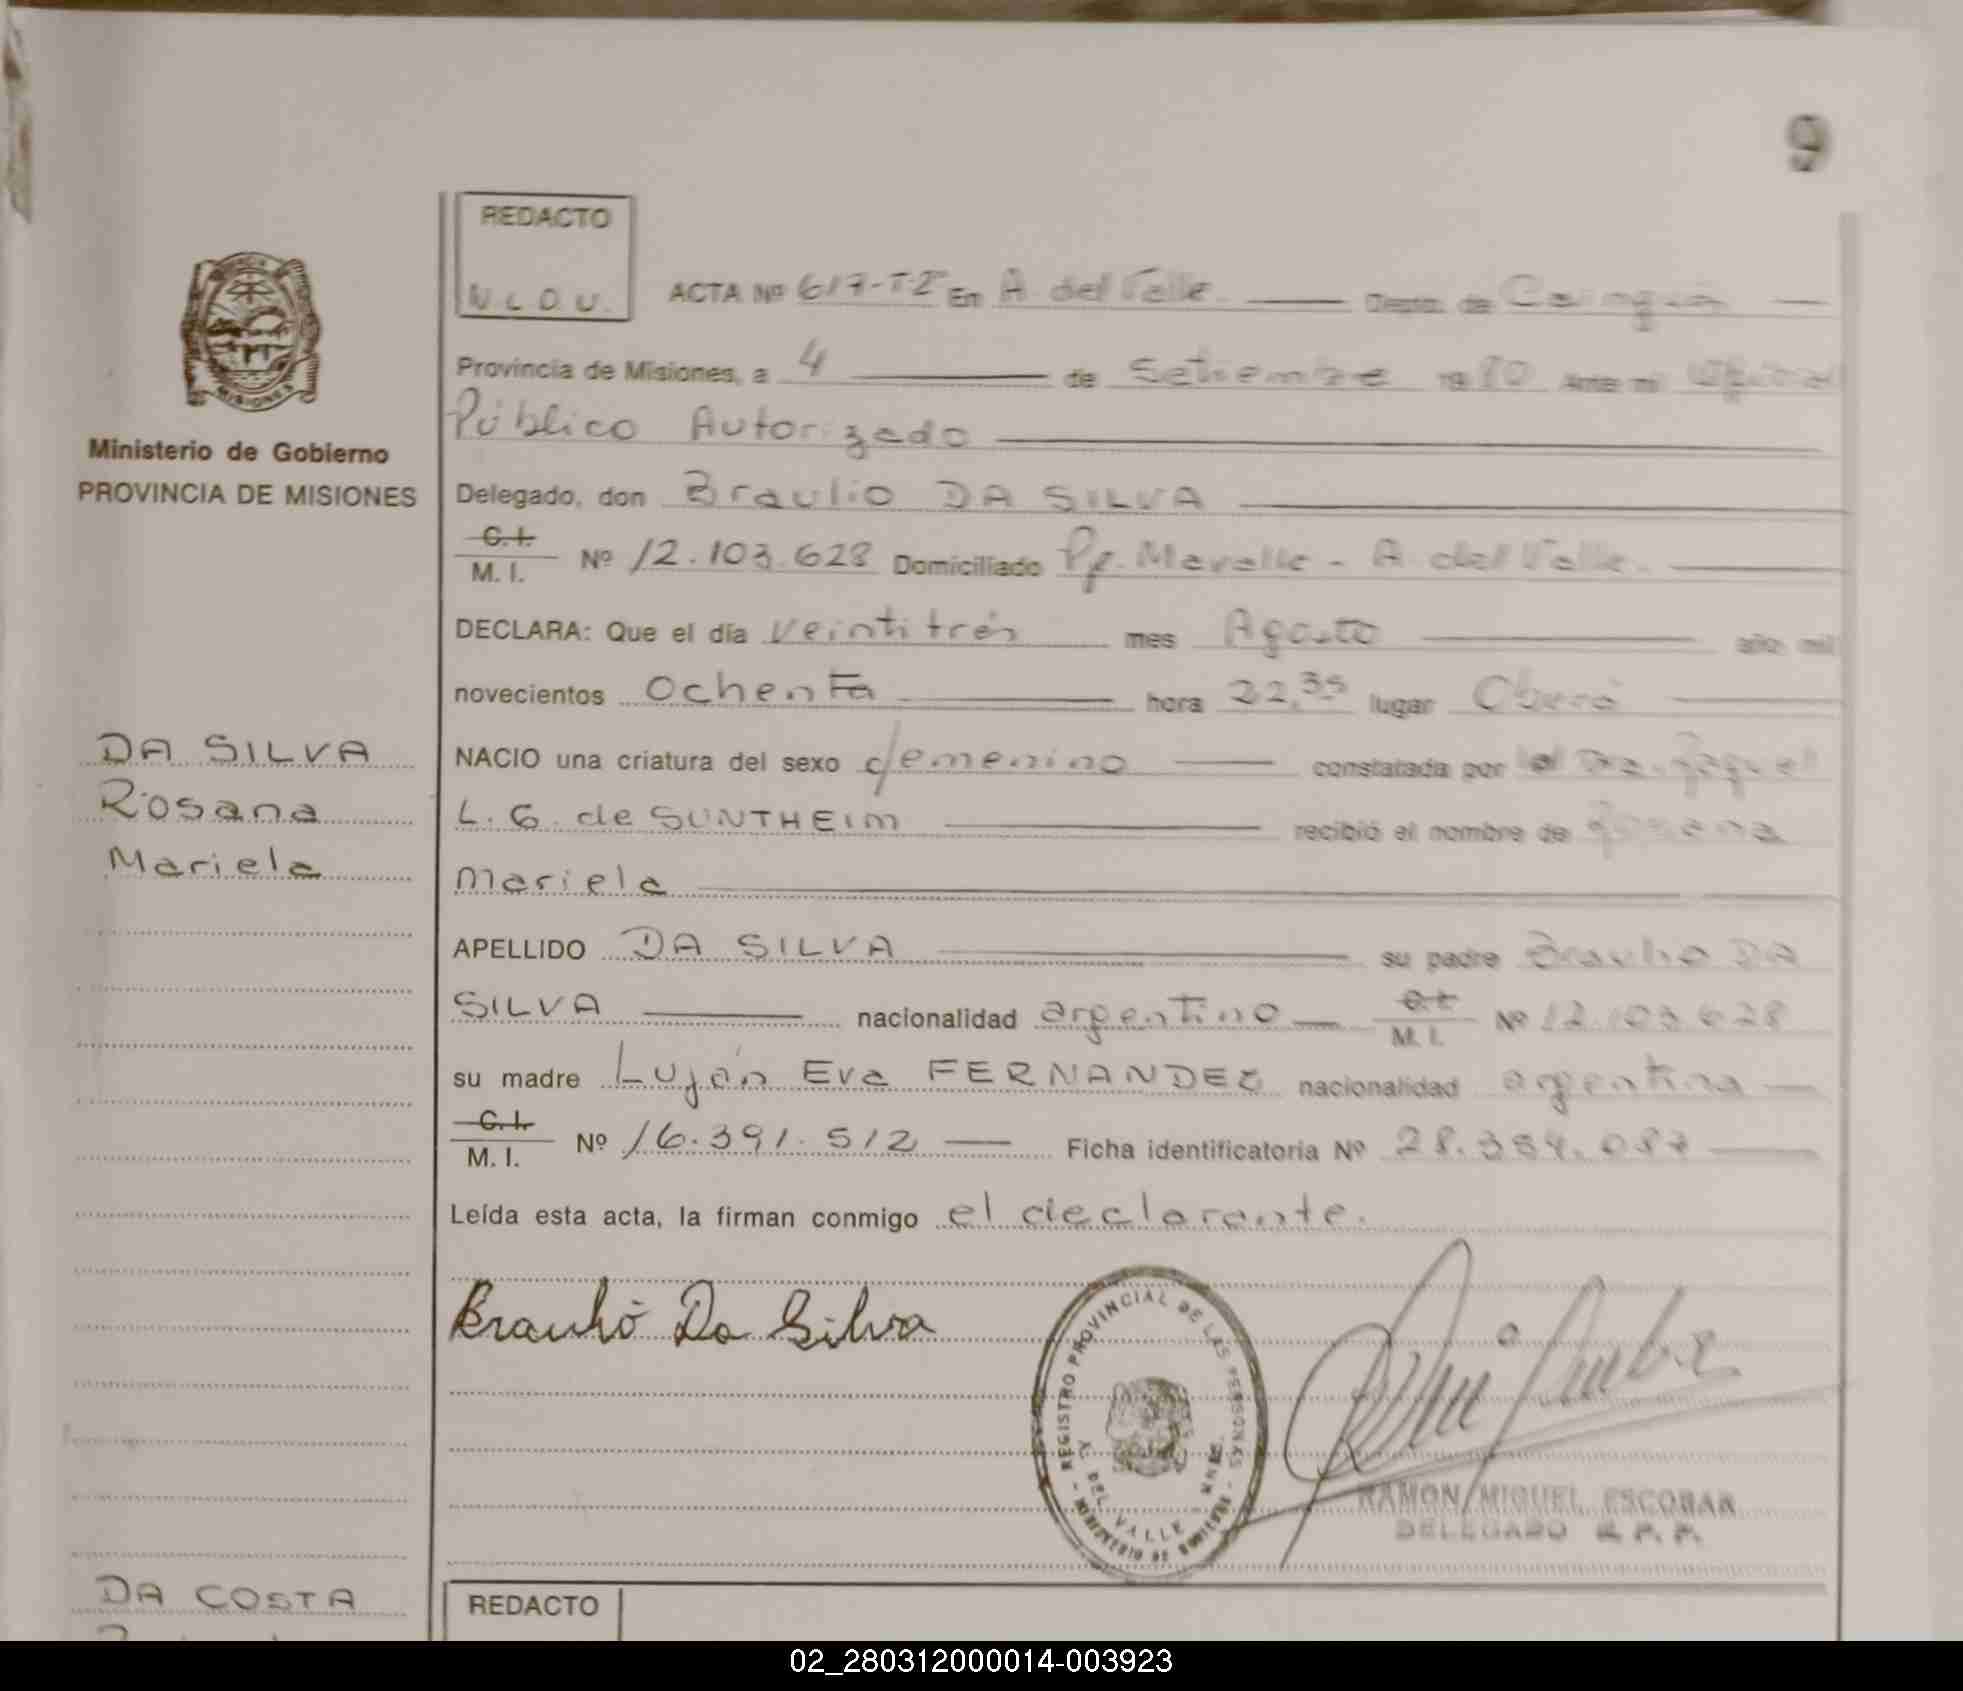 9
REDACTO
N L D U.
ACTA Nº 617-T-I En A. del Valle Depto. de Cainguás
Provincia de Misiones, a 4 de Setiembre 1980 Ante mi Oficial
Público Autorizado
Ministerio de Gobierno
PROVINCIA DE MISIONES
MISIONES
Delegado, don Braulio DA SILVA
C.I.
M. I. Nº 12.103.628 Domiciliado A. del Valle.
DECLARA: Que el día veintitrés mes Agosto año mil
novecientos ochenta hora 22,35 lugar Oberá
DA SILVA
Rosana
Mariela
NACIO una criatura del sexo femenino constatada por la Dra. Raquel
L. G. de SUNTHEIM recibió el nombre de Rosana
Mariela
APELLIDO DA SILVA su padre Braulio DA
SILVA nacionalidad argentino C.I.
M. I. Nº 12.103.628
su madre Luján Eva FERNANDEZ nacionalidad argentina
C.I.
M. I. Nº 16.391.512 Ficha identificatoria Nº
Leída esta acta, la firman conmigo el declarante.
Braulio Da Silva
REGISTRO PROVINCIAL DE LAS PERSONAS
A. DEL VALLE
RAMON MIGUEL ESCOBAR
DELEGADO R. P. P.
DA COSTA
REDACTO
02_280312000014-003923